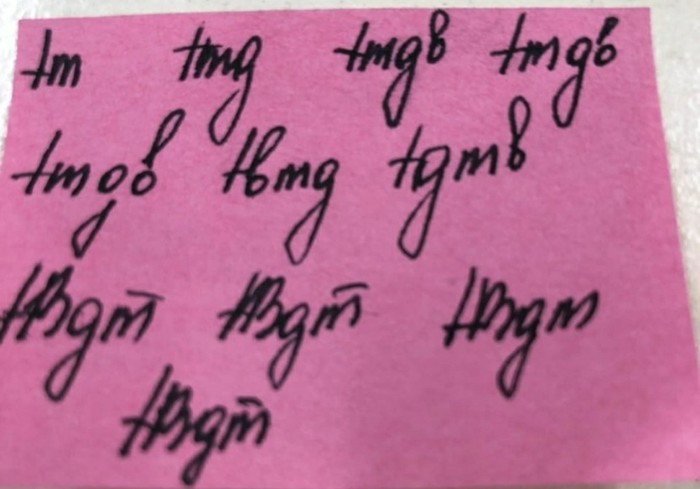 tm tmg tmgв tmgв
tmgв tвmg tgmв
tBgm̄ tBgm̄ tBgm
tBgm̄